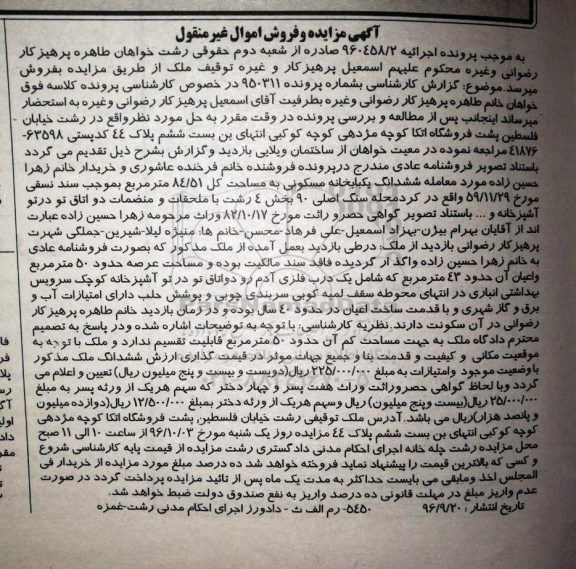 آگهی مزایده و فروش اموال غیر منقول
به موجب پرونده اجرائیه ۹۶۰۴۵۸/۲ صادره از شعبه دوم حقوقی رشت خواهان طاهره پرهیز کار
رضوانی وغیره محکوم علیهم اسمعیل پرهیز کار و غیره توقیف ملک از طریق مزایده بفروش
میرسد.موضوع: گزارش کارشناسی بشماره پرونده ۹۵۰۳۱۱ در خصوص کارشناسی پرونده کلاسه فوق
خواهان خانم طاهره پرهیز کار رضوانی وغیره بطرفیت آقای اسمعیل پرهیز کار رضوانی وغیره به استحضار
میرساند اینجانب پس از مطالعه و بررسی پرونده در وقت مقرر به حل مورد نظر واقع در رشت خیابان
فلسطین پشت فروشگاه اتکا کوچه مژدهی کوچه کوکبی انتهای بن بست ششم پلاک ٤٤ کدپستی ۶۳۵۹۸-
۴۱۸۷۶ مراجعه نموده در معیت خواهان از ساختمان ویلایی بازدید وگزارش بشرح ذیل تقدیم می گردد
باستناد تصویر فروشنامه عادی مندرج درپرونده فروشنده خانم فرخنده عاشوری و خریدار خانم زهرا
حسین زاده مورد معامله ششدانگ یکبابخانه مسکونی به مساحت کل ۸۴/۵۱ مترمربع بموجب سند نسقی
مورخ ۵۹/۱۱/۲۹ واقع در کردمحله سنگ اصلی ۹۰ بخش ٤ رشت با ملحقات و منضمات دو اتاق تو درتو
آشپزخانه و ... باستناد تصویر گواهی حصر و راثت مورخ ۸۲/۱۰/۱۷ وراث مرحومه زهرا حسین زاده عبارت
اند از آقایان بهرام بیژن-بهزاد اسمعیل-علی فرهاد-محسن-خانم ها: منیژه لیلا-شیرین-جملگی شهرت
پرهیز کار رضوانی بازدید از ملک: درطی بازدید بعمل آمده از ملک مذکور که بصورت فروشنامه عادی
به خانم زهرا حسین زاده واگذار گردیده فاقد سند مالکیت بوده و مساحت عرصه حدود ۵۰ مترمربع
واعیان آن حدود ۴۳ مترمربع که شامل یک درب فلزی آدم رو دواتاق تو در تو آشپزخانه کوچک سرویس
بهداشتی انباری در انتهای محوطه سقف لمبه کوبی سربندی چوبی و پوشش حلب دارای امتیازات آب و
برق و گاز شهری و با قدمت ساخت اعیان در حدود ۴۰ سال بوده و در زمان بازدید خانم طاهره پرهیز کار
رضوانی در آن سکونت دارند.نظریه کارشناسی: با توجه به توضیحات اشاره شده ودر پاسخ به تصمیم
محترم دادگاه ملک به جهت مساحت کم آن حدود ۵۰ مترمربع قابلیت تقسیم ندارد و ملک با توجه به
موقعیت مکانی و کیفیت و قدمت بنا و جمیع جهات موثر در قیمت گذاری ارزش ششدانگ ملک مذکور
باوضعیت موجود وامتیازات به مبلغ ۲۲۵/۰۰۰/۰۰۰ریال(دویست و بیست و پنج میلیون ریال) تعیین و اعلام می
گردد وبا لحاظ گواهی حصروراثت وراث هفت پسر و چهار دختر که سهم هریک از ورثه پسر به مبلغ
۲۵/۰۰۰/۰۰۰ ریال(بیست وپنج میلیون) ریال وسهم هریک از ورثه دختر بمبلغ ۱۲/۵۰۰/۰۰۰ ریال(دوازده میلیون
و پانصد هزار)ریال می باشد.آدرس ملک توقیفی رشت خیابان فلسطین پشت فروشگاه اتکا کوچه مژدهی
کوچه کوکبی انتهای بن بست ششم پلاک ٤٤ مزایده روز یک شنبه مورخ ۹۶/۱۰/۰۳ از ساعت ۱۰ الی ۱۱ صبح
محل مزایده رشت چله خانه اجرای احکام مدنی دادگستری رشت مزایده از قیمت پایه کارشناسی شروع
و کسی که بالاترین قیمت را پیشنهاد نماید فروخته خواهد شد ده درصد مبلغ مورد مزایده از خریدار فی
المجلس اخذ ومابقی می بایست حداکثر به مدت یک ماه پس از تائید مزایده پرداخت گردد در صورت
عدم واریز مبلغ در مهلت قانونی ده درصد واریز به نفع صندوق دولت ضبط خواهد شد.
تاریخ انتشار: ۹۶/۹/۲۰ ۵۴۵۰- رم الف ث - دادورز اجرای احکام مدنی رشت-غمزه